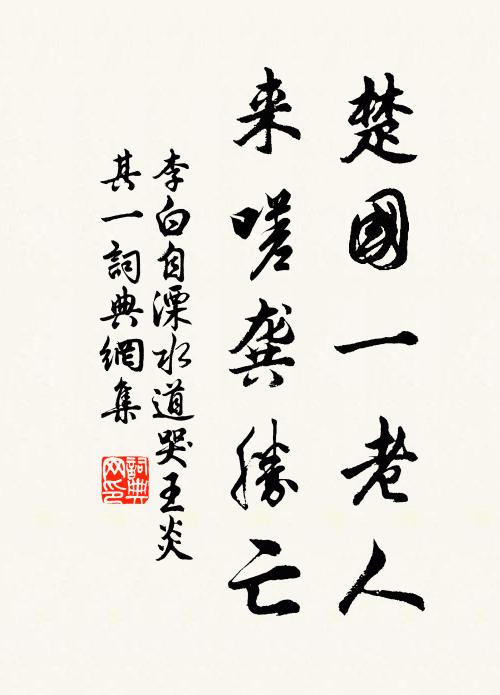 楚國一老人
来嗟龔勝亡
李白自溧水道哭王炎
其一詞典網集
詞典
网印